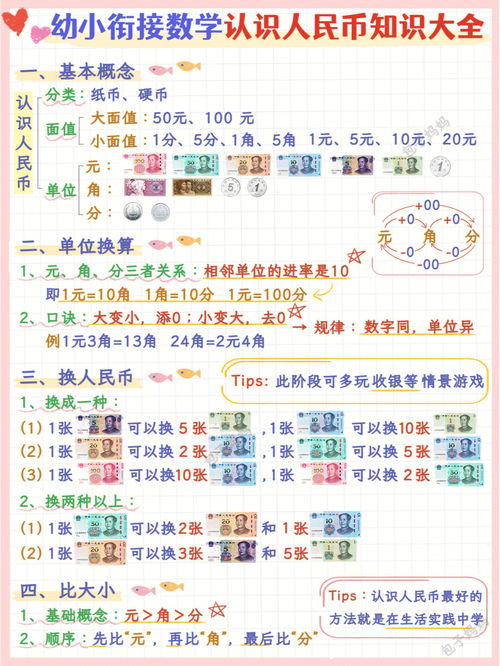 幼小衔接数学认识人民币知识大全
一、基本概念
认识人民币
分类：纸币、硬币
面值
大面值：50元、100 元
小面值：1分、5分、1角、5角 1元、5元、10元、20元
单位
元：
角：
分：
包子妈妈
+00
+0 +0
元 角 分
-0 -0
-00
二、单位换算
1、元、角、分三者关系：相邻单位的进率是10
即1元=10角 1角=10分 1元=100分
2、口诀：大变小，添0；小变大，去0
规律：数字同，单位异
例1元3角=13角 24角=2元4角
三、换人民币
Tips：此阶段可多玩收银等情景游戏
1、换成一种：
(1) 1张 可以换 5张 ,1张 可以换10张
(2) 1张 可以换 2张 ,1张 可以换 5张
(3) 1张 可以换10张 ,1张 可以换 2张
2、换两种以上：
(1) 1张 可以换2张 和 1张
(2) 1张 可以换3张 和 5张
包子妈妈
四、比大小
1、基础概念：元＞角＞分
2、顺序：先比“元”，再比“角”，最后比“分”
Tips：认识人民币最好的
方法就是在生活实践中学
包子妈妈